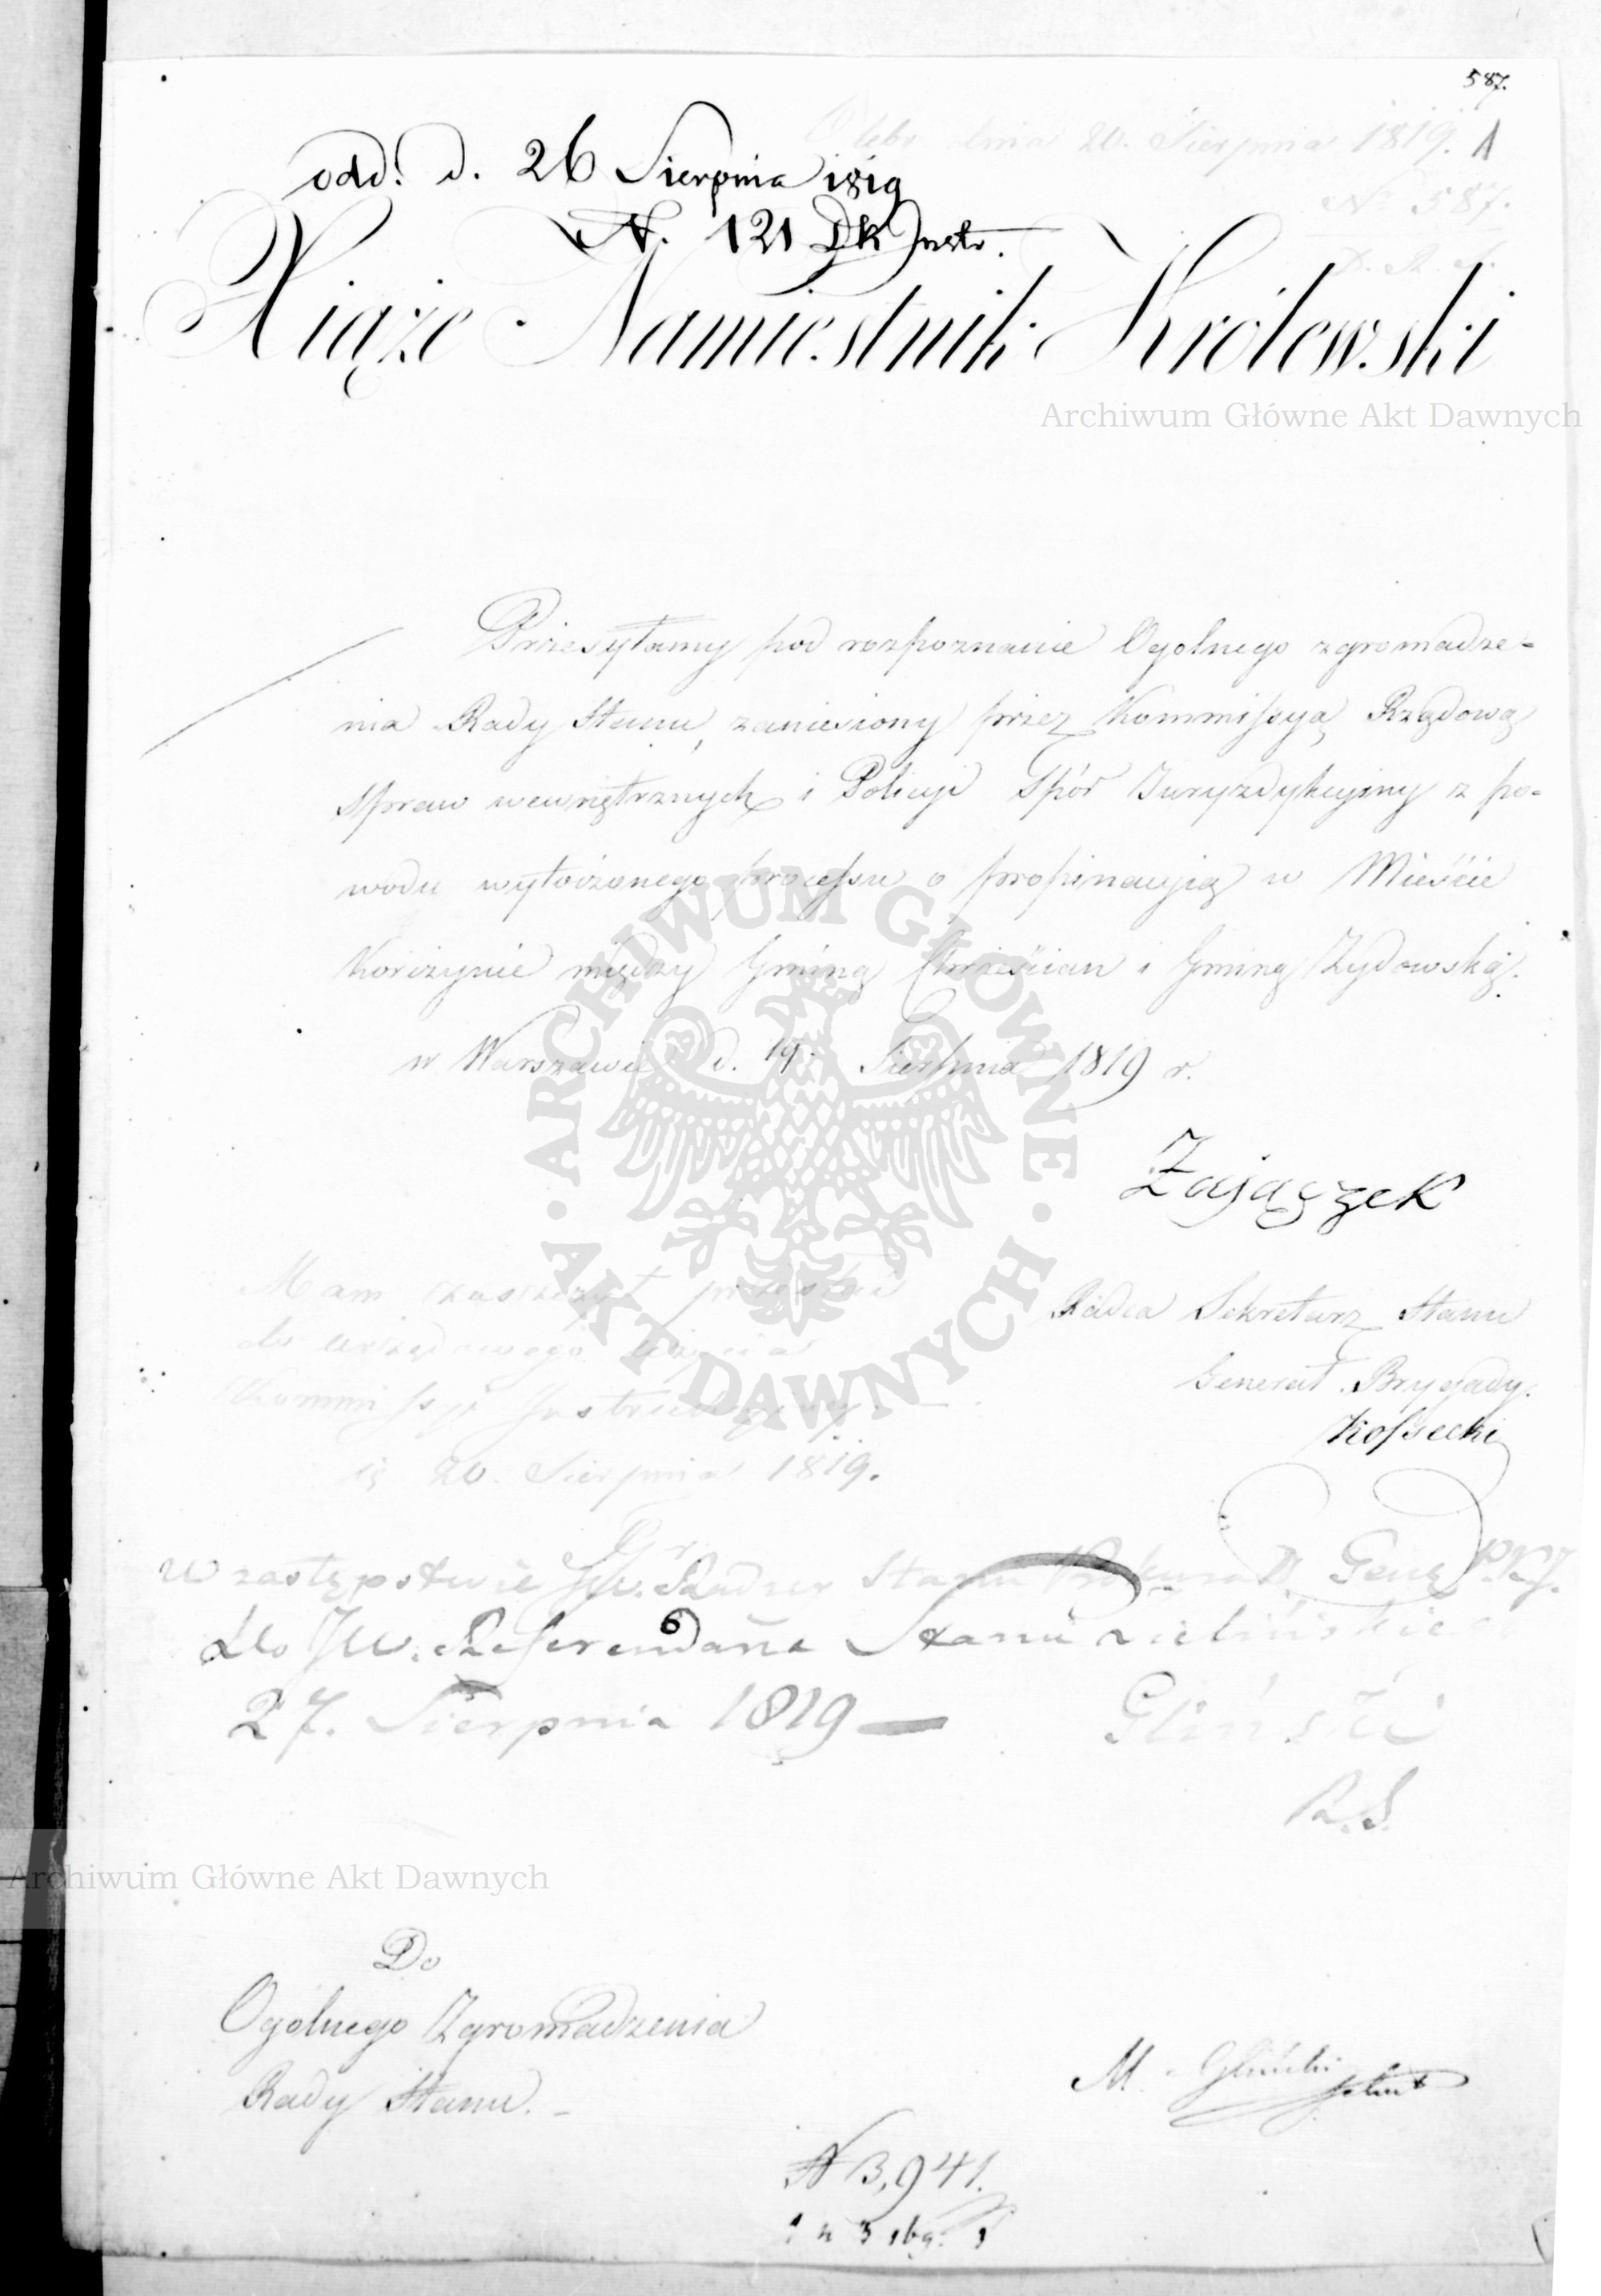 587.
Odebr. dnia 20. Sierpnia 1819. 1
odd. d. 26 Sierpnia 1819
No 587.
N. 121 DK Instr.
Xiąże Namiestnik Królewski
Archiwum Główne Akt Dawnych
Przesyłamy pod rozpoznanie Ogolnego zgromadze=
nia Rady Stanu, zaniesiony przez Kommissyą Rządową
Spraw wewnętrznych i Policyi Spór Juryzdykcyiny z po=
wodu wytoczonego processu o propinacyią w Mieście
Korczynie między Gminą Chrześcian i Gminą Zydowską.
w Warszawie d. 19. Sierpnia 1819 r.
Zajączek
Mam zaszczyt przesłać
do urzędowego użycia
Kommissyi Instrukcyiney.
d. 20. Sierpnia 1819.
Radca Sekretarz Stanu
Generał Brygady.
Kossecki
W zastępstwie JW. Radzcy Stanu Prokurat. Gene
Do JW. Referendarza Stanu Zielińskiego
6
27. Sierpnia 1819 —
Gliński
R. S.
Archiwum Główne Akt Dawnych
Do
Ogólnego Zgromadzenia
Rady Stanu. -
M. Gliński
N 3,941.
ARCHIWUM GŁÓWNE · AKT DAWNYCH ·